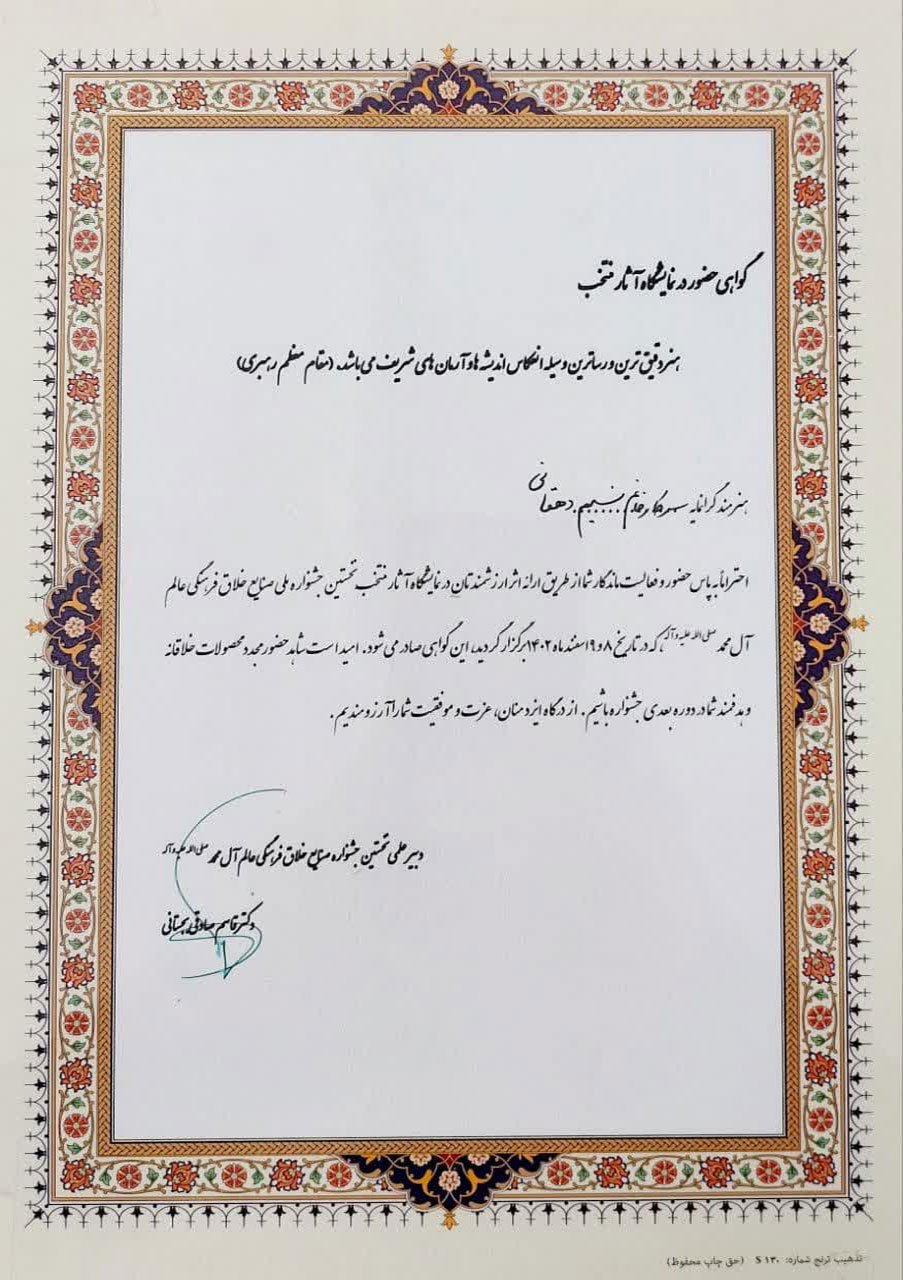 گواهی حضور در نمایشگاه آثار منتخب
هنر دقیق‌ترین و رساترین وسیله انعکاس اندیشه‌ها و آرمان‌های شریف می‌باشد. (مقام معظم رهبری)
هنرمند گرانمایه سرکار خانم نسیم دهقانی
احتراماً به پاس حضور و فعالیت ماندگار شما از طریق ارائه اثر ارزشمندتان در نمایشگاه آثار منتخب نخستین جشنواره ملی صنایع خلاق فرهنگی عالم
آل محمد صلی الله علیه و آله، که در تاریخ ۸ و ۹ اسفند ماه ۱۴۰۲ برگزار گردید، این گواهی صادر می‌شود. امید است شاهد حضور مجدد محصولات خلاقانه
و هدفمند شما در دوره بعدی جشنواره باشیم. از درگاه ایزد منان، عزت و موفقیت شما را آرزومندیم.
دبیر علمی نخستین جشنواره صنایع خلاق فرهنگی عالم آل محمد صلی الله علیه و آله
دکتر قاسم صادقی بجستانی
تذهیب ترنج شماره: S ۱۳۰ (حق چاپ محفوظ)